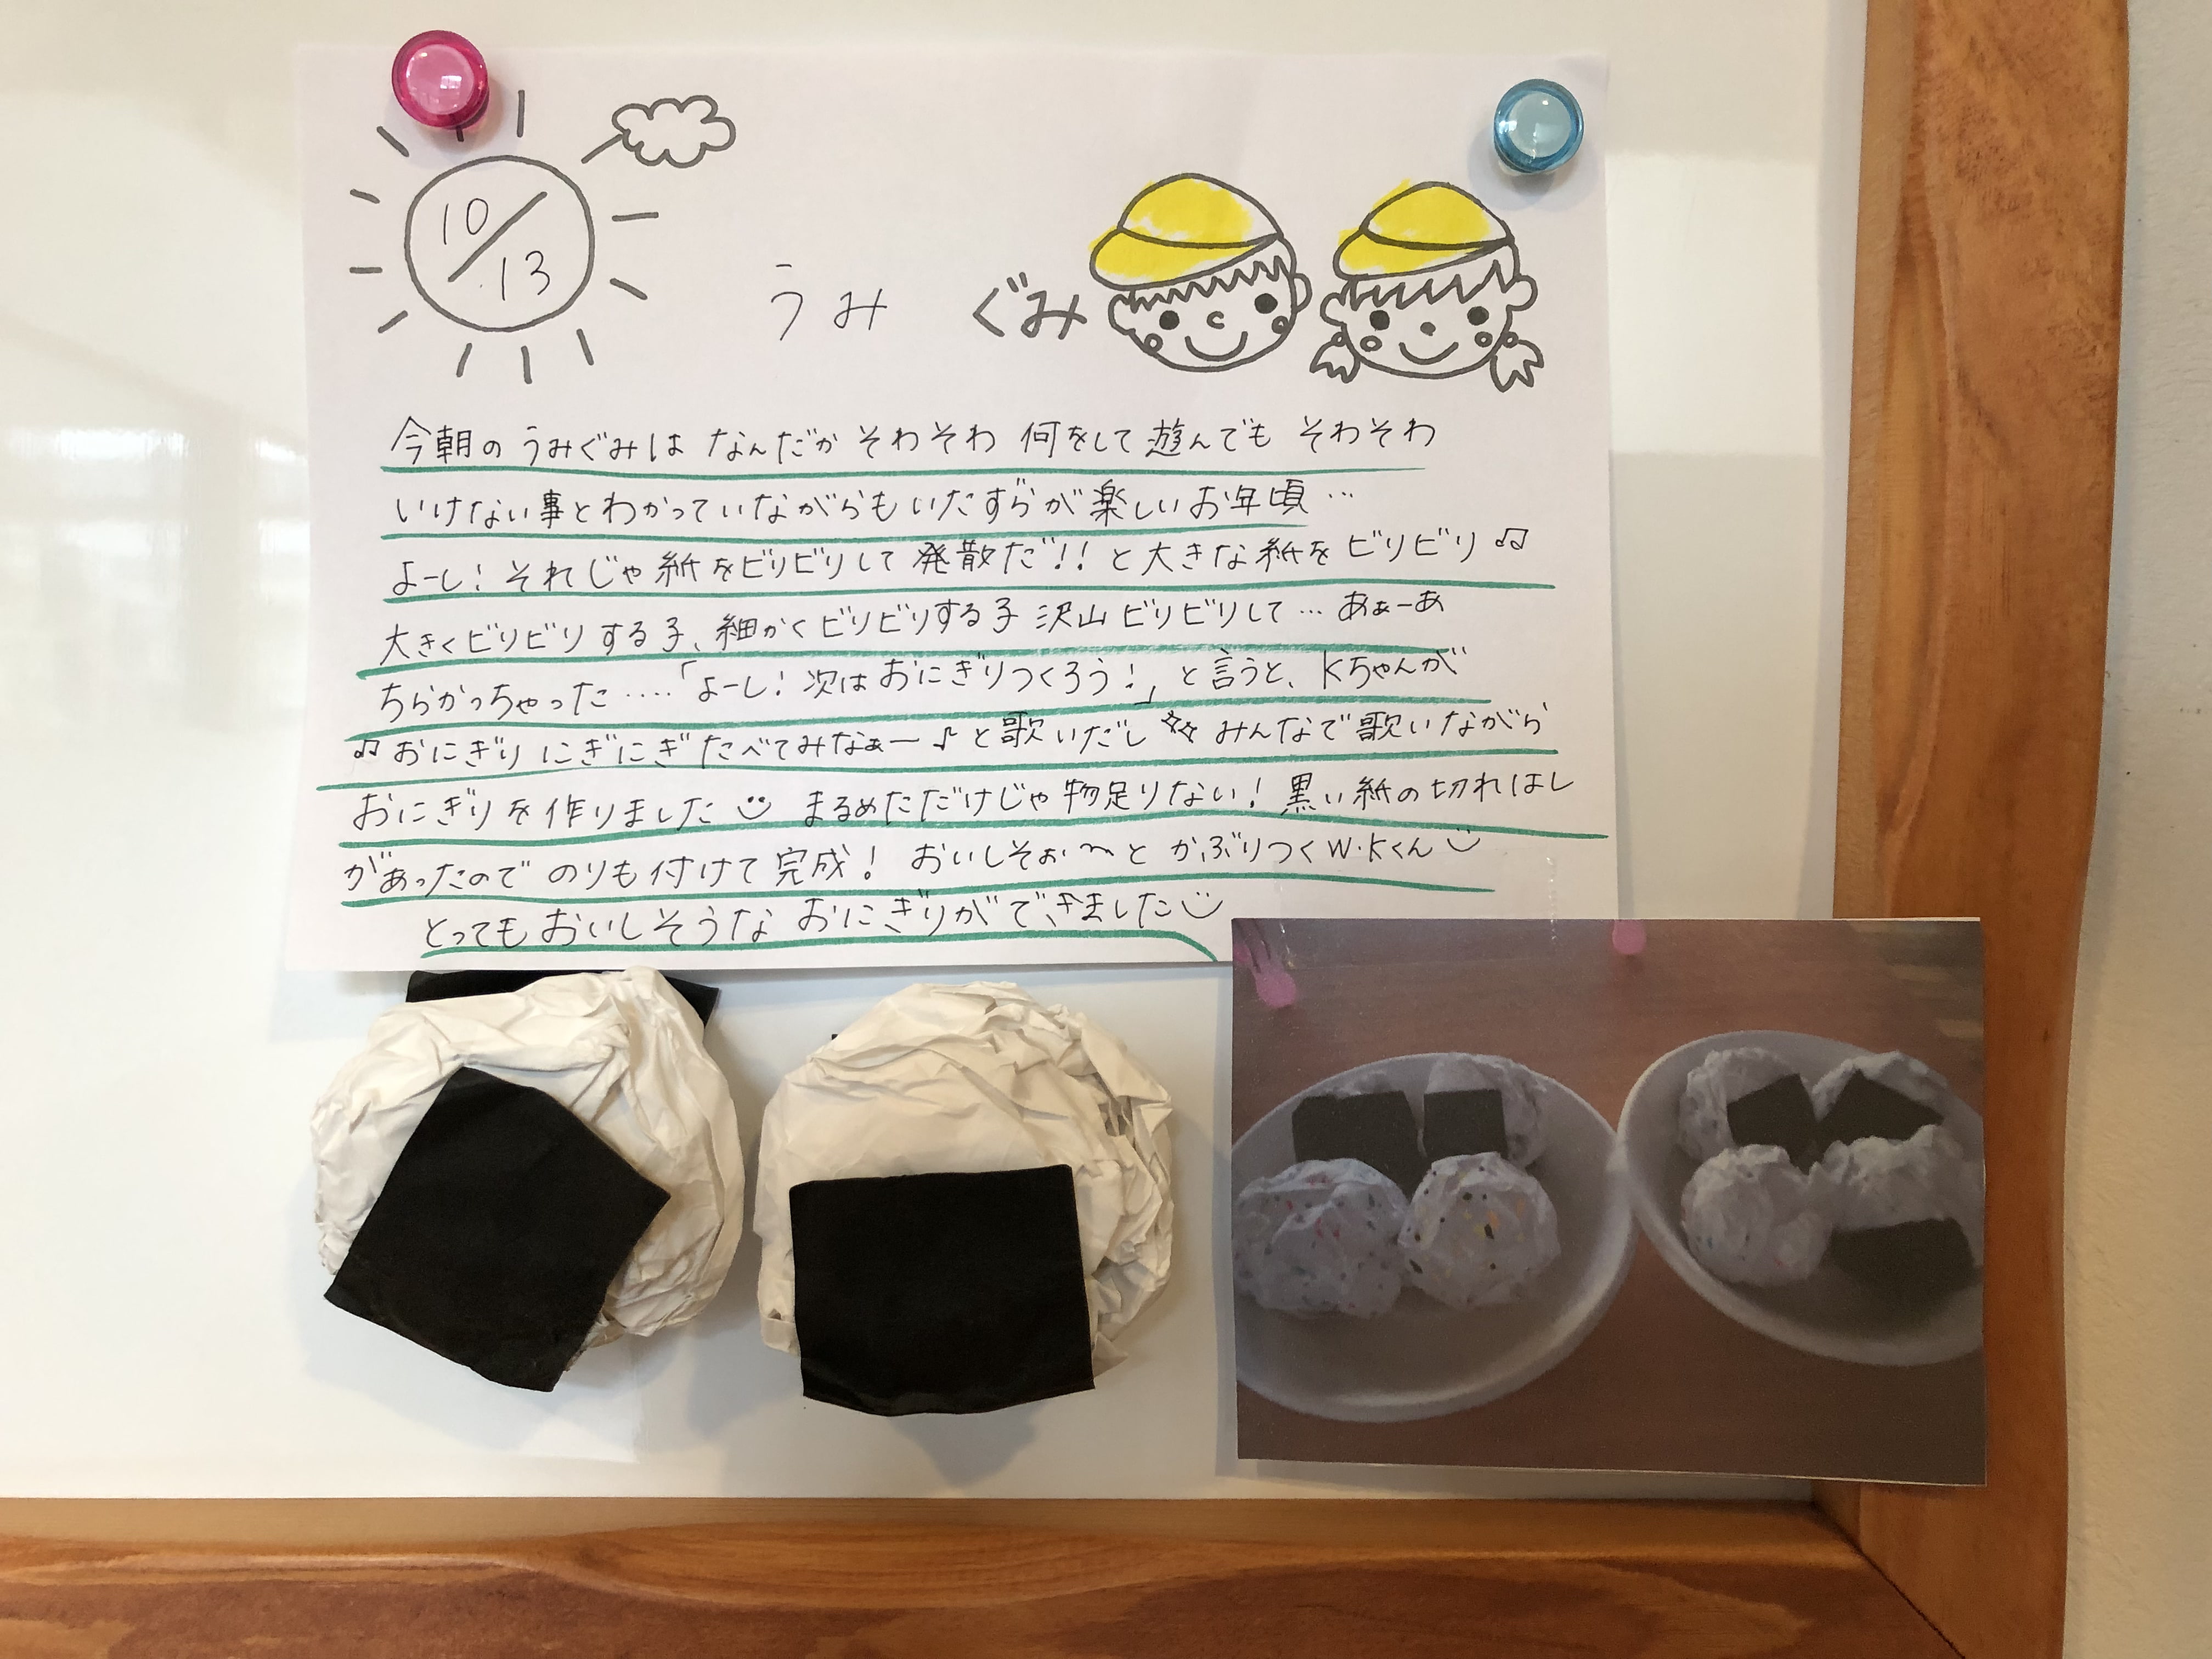 10/13
うみ ぐみ
今朝の うみぐみは なんだか そわそわ 何をして 遊んでも そわそわ
いけない事とわかっていながらもいたずらが楽しいお年頃…
よーし！それじゃ紙をビリビリして発散だ！！と大きな紙をビリビリ♫
大きくビリビリする子、細かくビリビリする子 沢山ビリビリして…あぁーあ
ちらかっちゃった……「よーし！次はおにぎりつくろう！」と言うと、Kちゃんが
♫おにぎり にぎにぎ たべてみなぁー♪と歌いだし みんなで歌いながら
おにぎりを作りました まるめただけじゃ物足りない！黒い紙の切れはし
があったので のりも付けて完成！ おいしそぉ〜と かぶりつくW・Kくん
とってもおいしそうな おにぎりができました